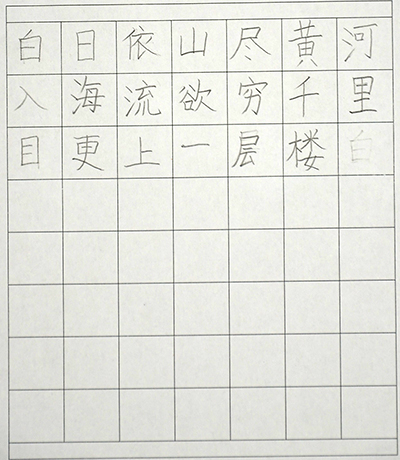 白日依山尽黄河
入海流欲穷千里
目更上一层楼白